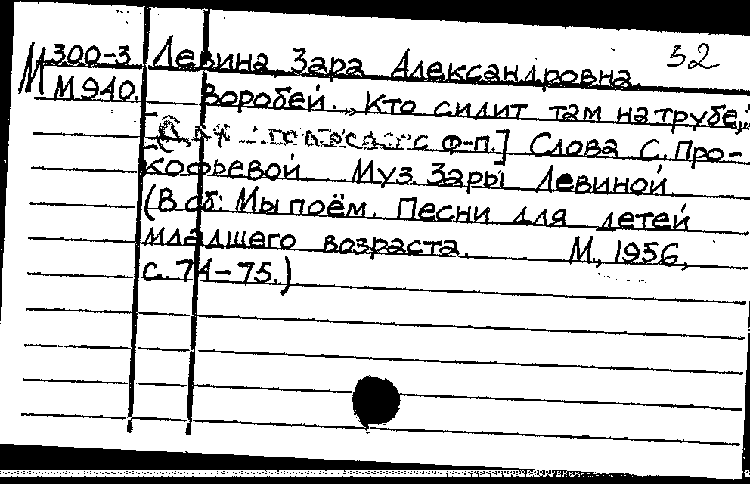 52
М 300-3 Левина, Зара Александровна.
М 940. Воробей. „Кто сидит там на трубе„.
[Для с ф-п.] Слова С. Про-
кофьевой Муз. Зары Левиной.
(В сб: Мы поём. Песни для детей
младшего возраста. М., 1956,
с. 74-75.)